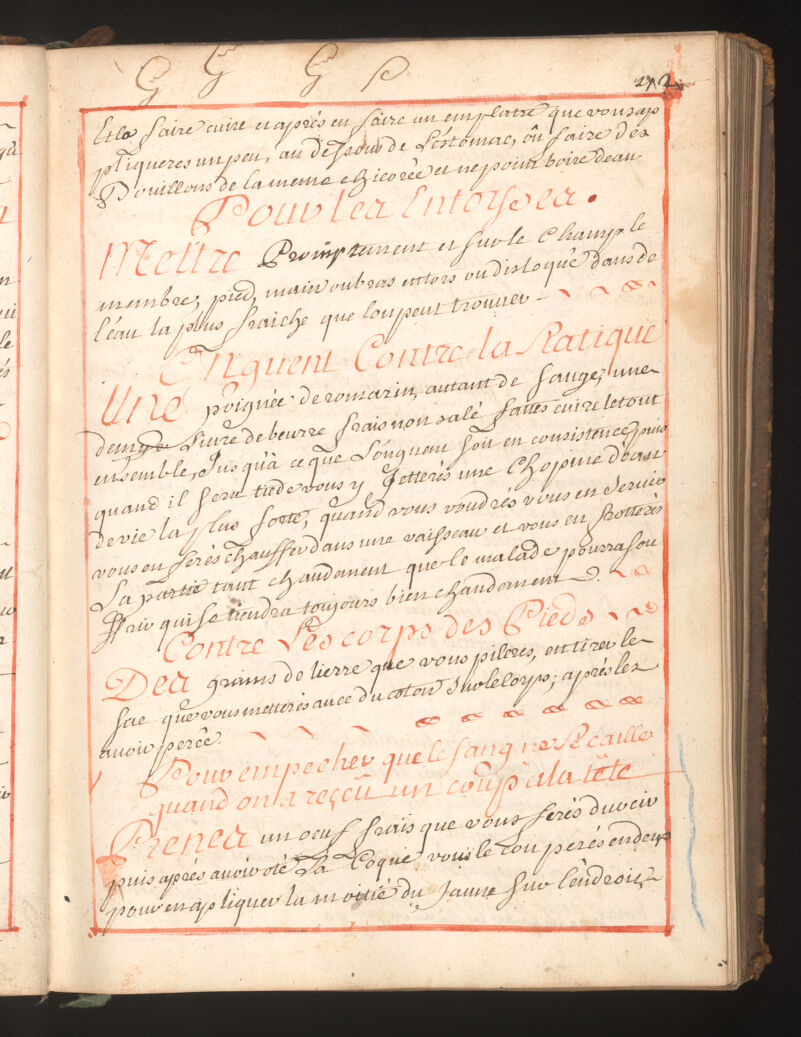 172
Et la faire cuire et aprés en faire un emplatre que vous ap
pliqueres un peu, au dessous de L'estomac, oû faire dés
Bouillons de la meme chicorêe et ne point boire deau.
Pour Les Entorses.
Mettre Promptement et sur le Champ le
membre, pied, main ou bras entors ou disloquê dans de
l'eau la plus fraiche que lon peut trouuer
Onguent Contre la Siatique
Une poignée de romarin, autant de sauge, une
demye Liure de beurre frais non salé faites cuire le tout
ensemble, Jusqu'à ce que L'onguent soit en consistence, puis
quand il sera tiede vous y Jetterés une Chopine d'eau
de vie la plus forte, quand vous voudrés vous en seruir
vous en ferés chauffer dans une vaisseau et vous en frotterés
La partie tant chaudement que le malade pourra sou
ffrir qui se tiendra toujours bien chaudement
Contre Les corps des Pieds
Des grains de lierre que vous pileres, en tirer le
suc que vous metterés auec du coton sur le corps; aprés les
auoir percé.
Pour empecher que le sang ne se caille
quand on a reçeü un coup à la tête
Prenez un oeuf frais que vous ferés durcir
puis aprés auoir oté La Coque vous le couperés en deux
pour en apliquer la moitié du Jaune sur l'endroit